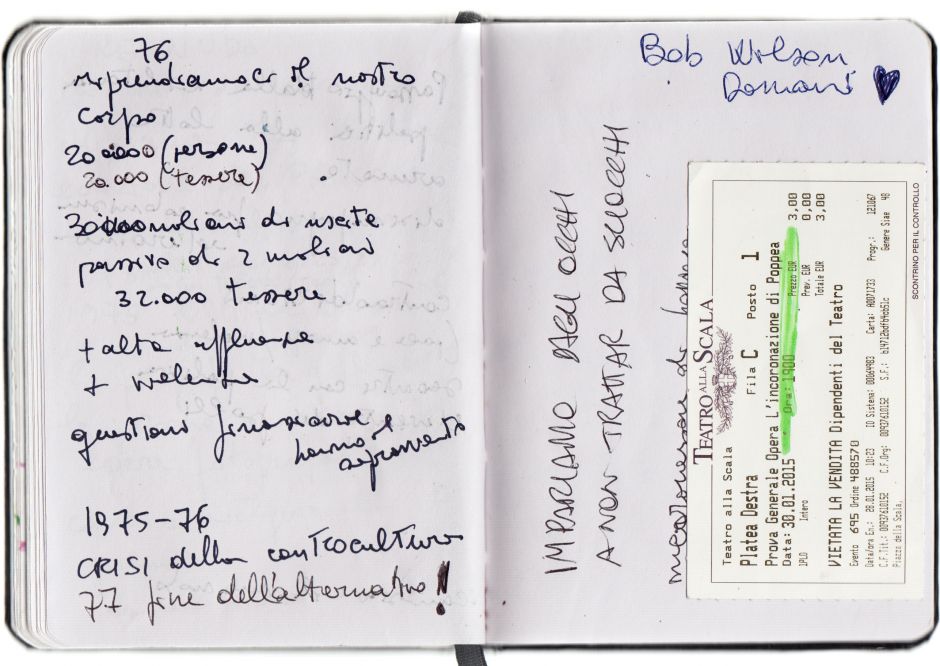 76
riprendiamoci il nostro
corpo
200000 (persone)
20.000 (tessere)
30 milioni di uscite
passivo di 2 milioni
32.000 tessere
+ alta affluenza
+ violenza
questioni finanziarie
hanno il
sopravvento
1975-76
CRISI della controcultura
77 fine dell'alternativo!
Bob Wilson
Domani ♥
IMPARIAMO DAGLI OCCHI
A NON TRATTAR DA SCIOCCHI
TEATRO ALLA SCALA
Teatro alla Scala
Platea Destra Fila C Posto 1
Prova Generale Opera L'incoronazione di Poppea
Data: 30.01.2015 Ora: 1900 Prezzo EUR 3,00
IPLO Intero Prev. EUR 0,00
Totale EUR 3,00
VIETATA LA VENDITA Dipendenti del Teatro
Evento 695 Ordine 488570
Data/ora En.: 28.01.2015 10:23 ID Sistema: 00064983 Carta: Progr.: 121067
C.F.Tit.: 00937610152 C.F.Org: 00937610152 S.F.: Genere Siae 48
Piazza della Scala,
SCONTRINO PER IL CONTROLLO